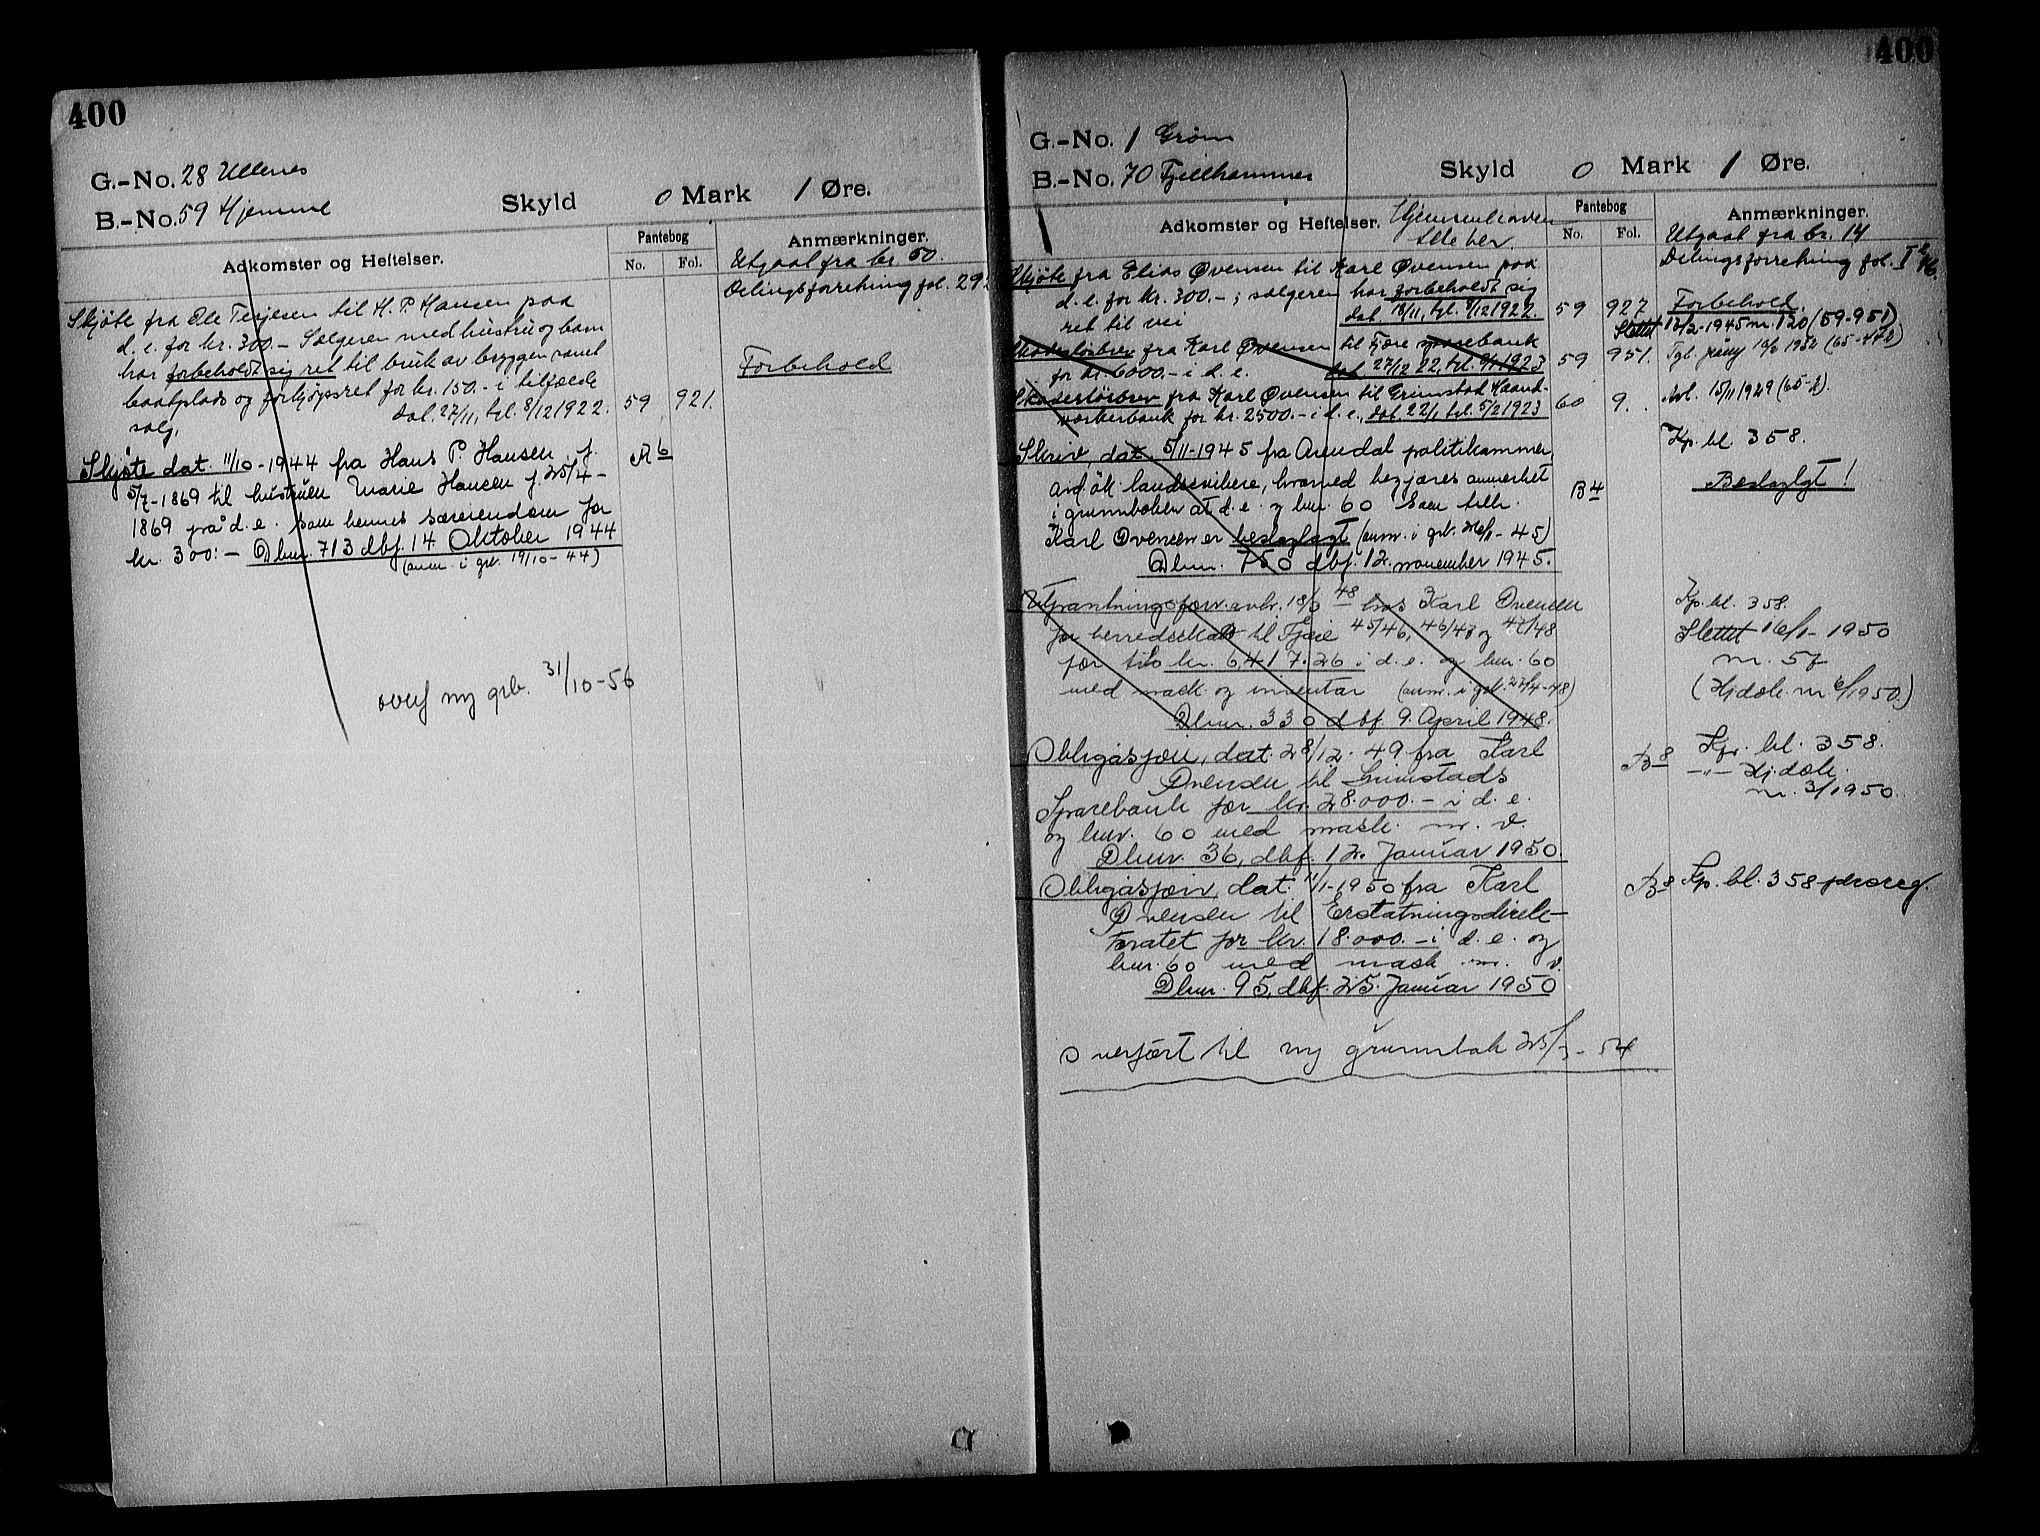 400
G.-No. 28 Ullenes
B.-No. 59 Hjemme
Skyld 0 Mark 1 Øre.
Adkomster og Heftelser.
Pantebog
No. Fol.
Anmærkninger.
Utgaat fra br. 50.
Delingsforretning fol. 292
Skjøte fra Ole Terjesen til H. P. Hansen paa
d. e. for kr. 300.- Sælgeren med hustru og barn
har forbeholdt sig ret til bruk av bryggen samt
baatplads og forkjøpsret for kr. 150.- i tilfælde
salg. dat. 27/11, tgl. 8/12 1922. 59 921.
Forbehold
Skjøte dat. 11/10-1944 fra Hans P. Hansen f.
5/7-1869 til hustruen Marie Hansen f. 25/4-
1869 på d. e. som hennes særeiendom for
kr. 300:- Dbnr. 713 dbf. 14 Oktober 1944
(anm. i grb. 19/10-44)
A 6
overf ny grb. 31/10-56
400
G.-No. 1 Grøm
B.-No. 70 Fjellhammer
Skyld 0 Mark 1 Øre.
Adkomster og Heftelser.
Pantebog
No. Fol.
Anmærkninger.
Utgaat fra br. 14
Delingsforretning fol. I
Skjøte fra Elias Øvensen til Karl Øvensen paa
d. e. for kr. 300.- ; sælgeren har forbeholdt sig
ret til vei dat. 18/11, tgl. 9/12 1922. 59 927
Forbehold.
Slettet 12/2-1945 nr. 120 (59-951)
Skadesløsbrev fra Karl Øvensen til Fjære sparebank
for kr. 6000.- i d. e. dat. 27/12 22, tgl. 9/1 1923 59 951.
Skadesløsbrev fra Karl Øvensen til Grimstad Haand-
verkerbank for kr. 2500.- i d. e., dat. 22/1, tgl. 5/2 1923 60 9.
Avl. 15/11 1929 (65-2).
Skriv, dat. 5/11-1945 fra Arendal politikammer,
avd øk. landssvikere, hvorved begjæres anmerket
i grunnboken at d. e. og bnr. 60 som tilh.
Karl Øvensen er beslaglagt (anm. i grb. 26/11-45)
Dbnr. 750 dbf. 12. november 1945.
B 4
Kp. bl. 358.
Beslaglagt!
Utpantningsforr. avh. 18/3 48 hos Karl Øvensen
for herredsskatt til Fjære 45/46, 46/47 og 47/48
før tils kr. 6.417.26 i d. e. og bnr. 60
med mask. og inventar (anm. i grb. 27/4-48)
Dbnr. 330 dbf. 9. April 1948.
Kp. bl. 358.
Slettet 16/1-1950
nr. 57
(Hjdok. nr 6/1950.)
Obligasjon, dat. 28/12.49 fra Karl
Øvensen til Grimstads
Sparebank for kr. 28.000.- i d. e.
og bnr. 60 med mask. m. v.
Dbnr. 36, dbf. 12. Januar 1950.
B 8
Kp. bl. 358.
-"- Hjdok.
nr. 3/1950.
Obligasjon, dat. 11/1-1950 fra Karl
Øvensen til Erstatningsdirek-
toratet for kr. 18.000.- i d. e. og
bnr. 60 med mask m. v.
Dbnr. 95, dbf. 25. Januar 1950
B 8 Kp. bl. 358
Overført til ny grunnbok 25/3-54